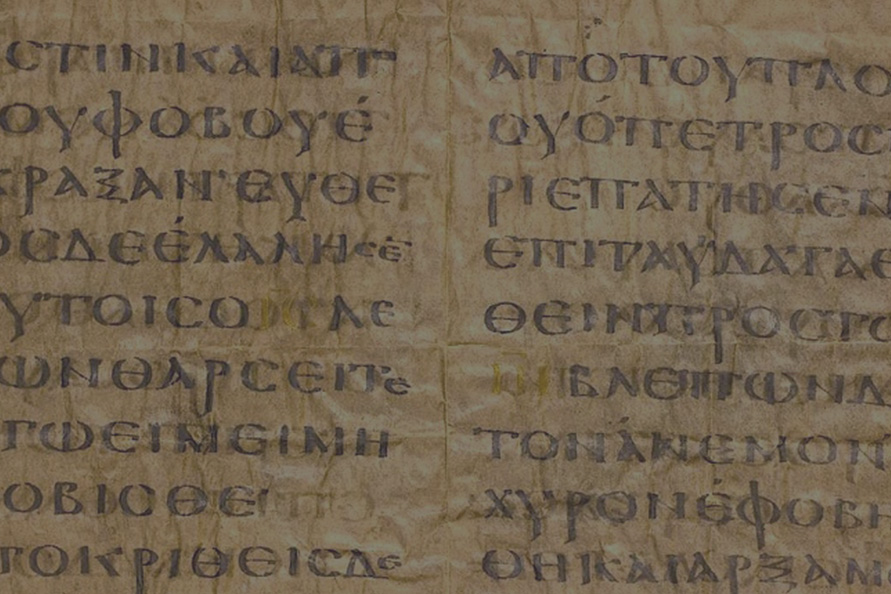 CΤΙΝΚΑΙΑΠ
ΟΥΦΟΒΟΥΕ
ΚΡΑΞΑΝ·ΕΥΘΕ
ΟCΔΕΕΛΑΛΗCΕ
ΥΤΟΙCΟΙCΛΕ
ΩΝΘΑΡCΕΙΤΕ
ΓΩΕΙΜΕΙΜΗ
ΟΒΙCΘΕ
ΠΟΚΡΙΘΕΙCΔΕ
ΑΠΟΤΟΥΠΛΟ
ΟΥΟΠΕΤΡΟC
ΡΙΕΠΑΤΗCΕΝ
ΕΠΙΤΑΥΔΑΤΑΕ
ΘΕΙΝΠΡΟCΤΟ
ΙΝΒΛΕΠΩΝΔ
ΤΟΝΑΝΕΜΟΝ
ΧΥΡΟΝΕΦΟΒΗ
ΘΗΚΑΙΑΡΞΑΜ